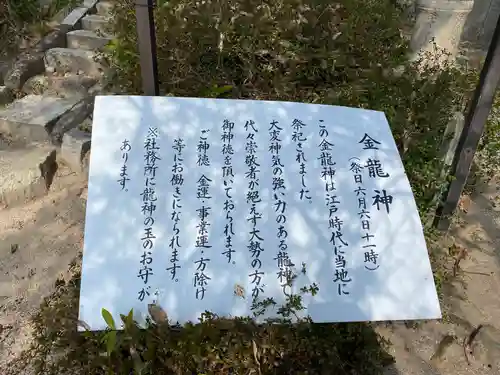 金龍神
（祭日六月六日十一時）
この金龍神は江戸時代に当地に
祭祀されました。
大変神気の強い力のある龍神で
代々崇敬者が絶えず大勢の方が
御神徳を頂いておられます。
ご神徳　金運・事業運・方除け
等にお働きになられます。
※社務所に龍神の玉のお守が
あります。